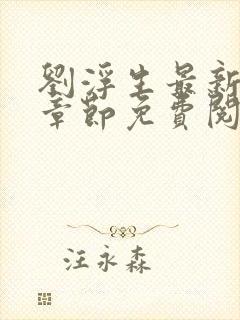 劉浮生最新
章節免費閱
汪永森